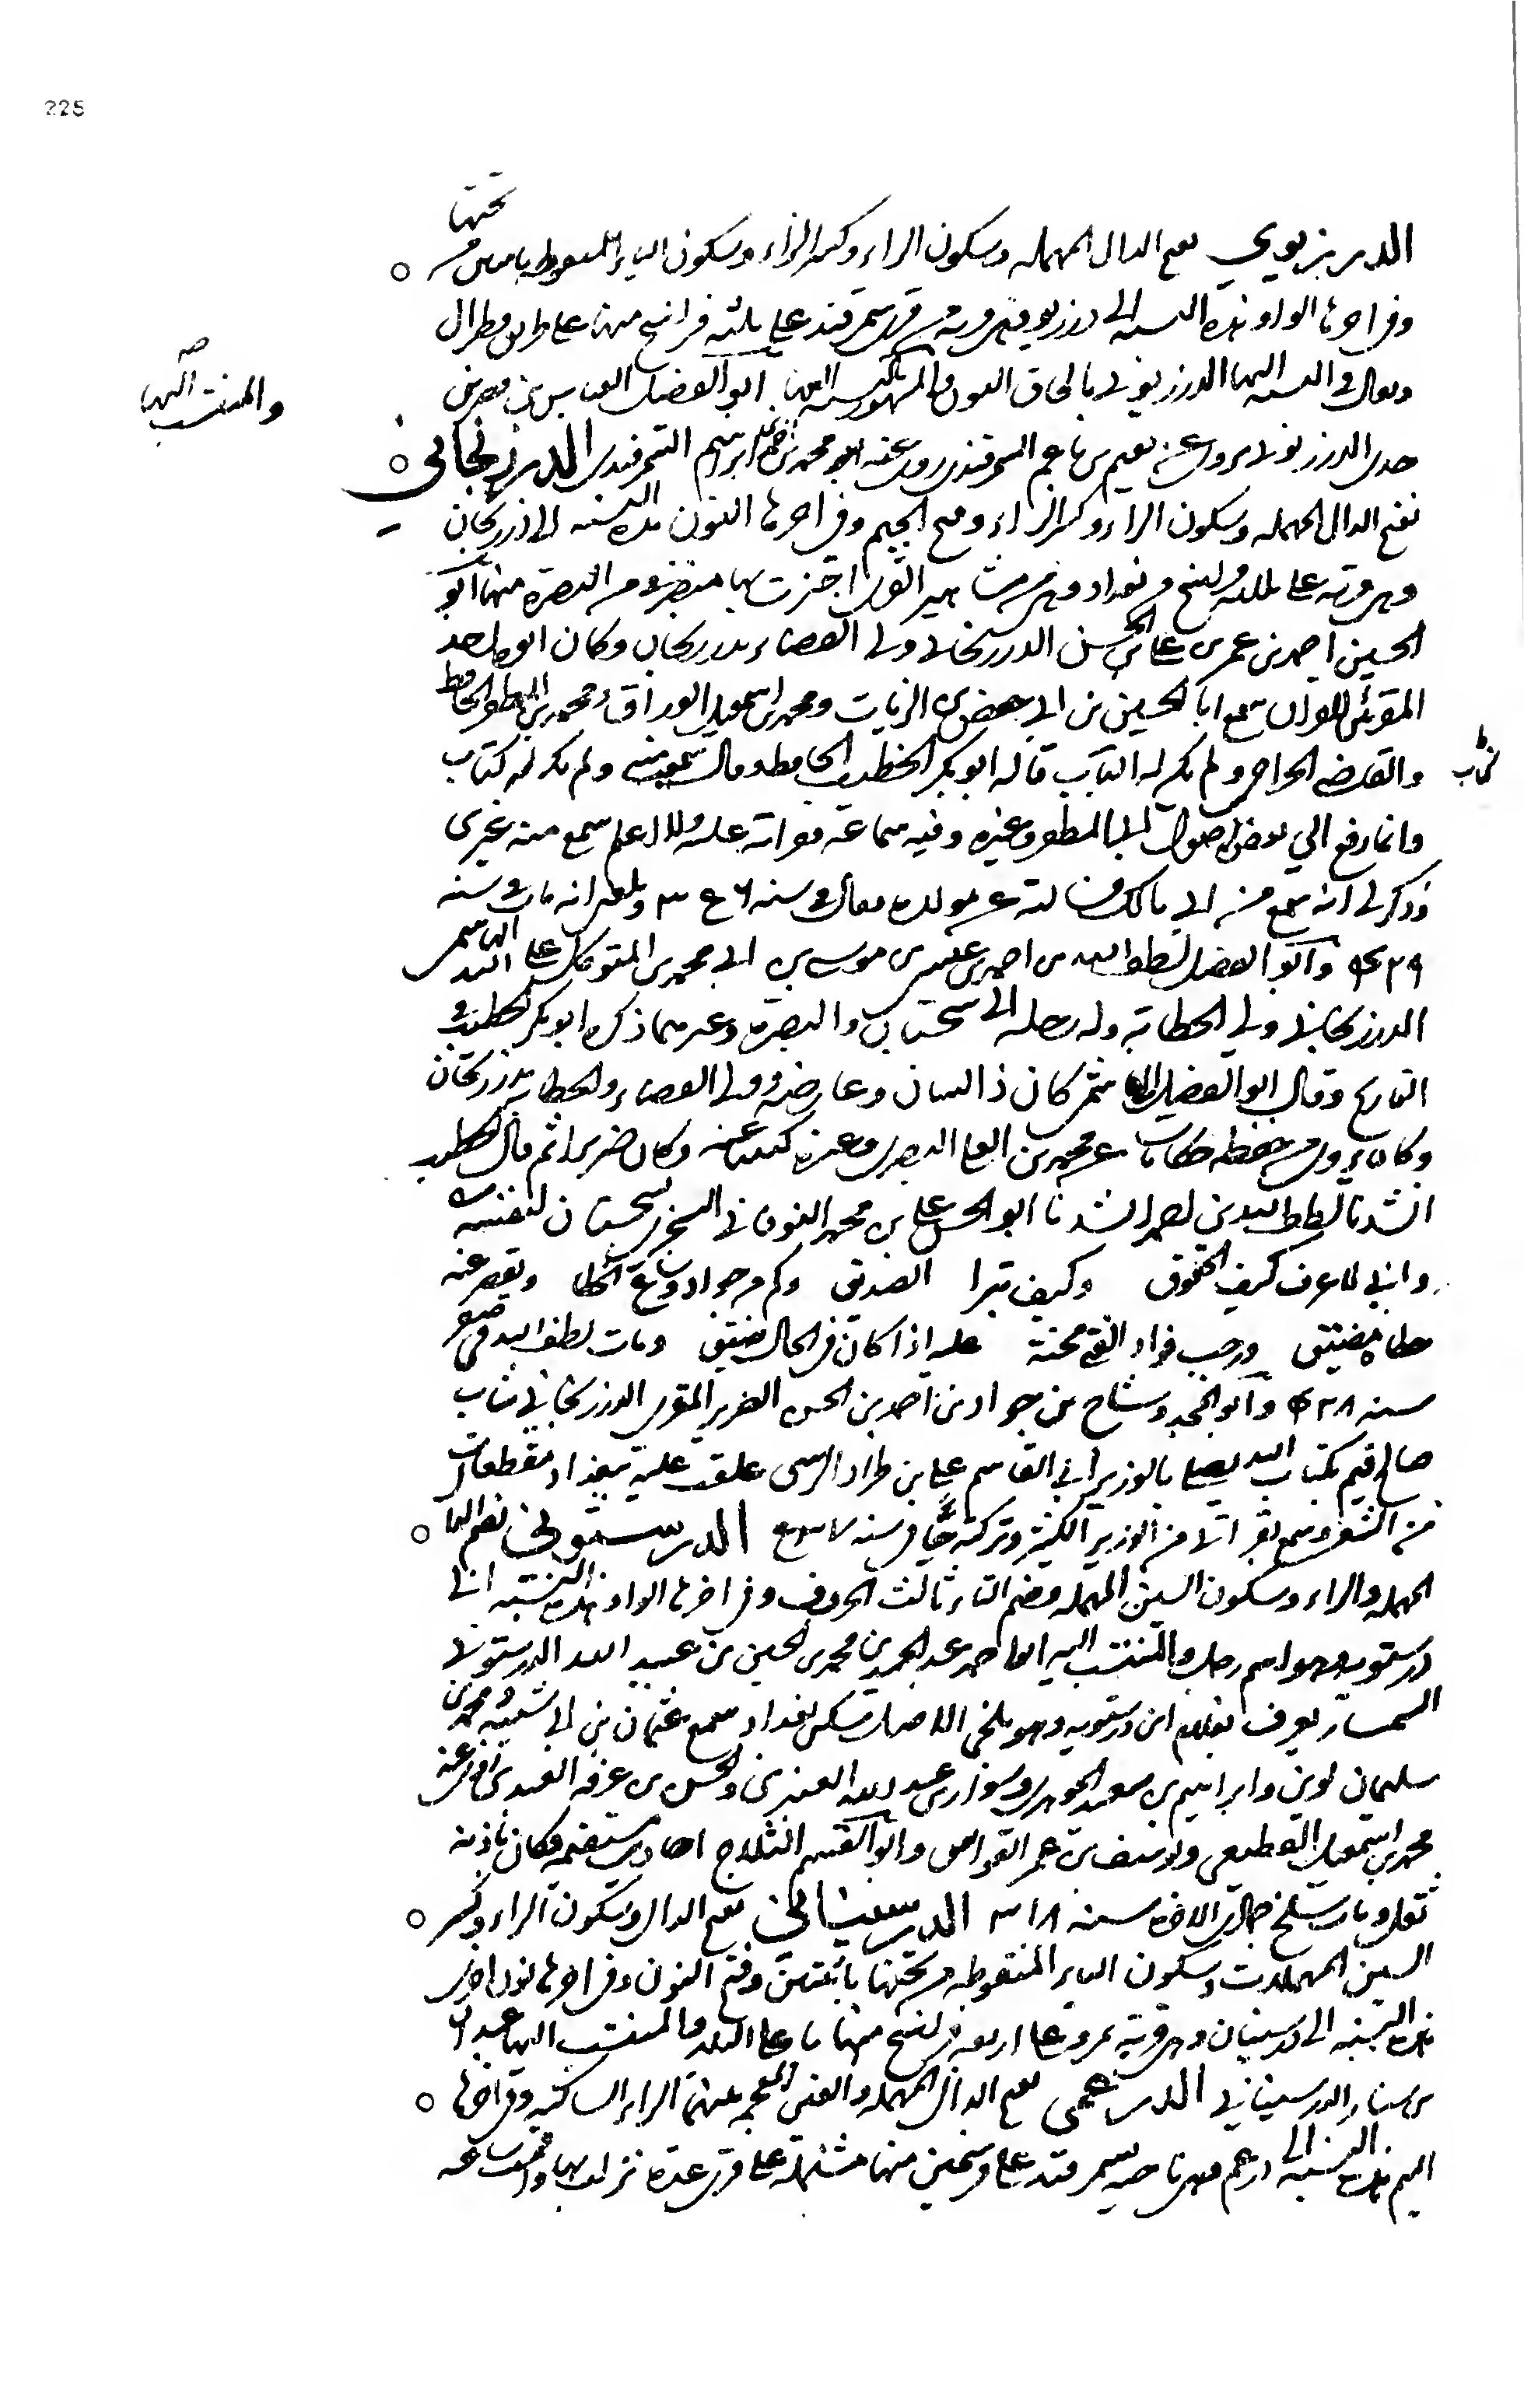 225
تحتها
الدرزيوي بفتح الدال المهملة وسكون الراء وكسر الزاء وسكون الياء المنقوطة باثنتين من
وفي اخرها الواو هذه النسبة الى درزيو وهي قرية من قرى سمرقند على ثلثة فراسخ منها على طريق قطوان
ويقال في النسبة اليها الدرزيوني بالحاق النون والمشهور بالنسبة اليها ابو الفضل العباس بن نصر بن
والمنتسب اليها صح
الدرزيوني يروي عن نعيم بن ناعم السمرقندي روى عنه ابو محمد بن ابراهيم السمرقندي الدرزيجاني
بفتح الدال المهملة وسكون الراء وكسر الزاء وفتح الجيم وفي اخرها النون هذه النسبة الى درزيجان
وهي قرية على ثلثة فراسخ من بغداد وهي من مشاهير القرى اجتزت بها منصرفي من البصرة منها ابو
الحسين احمد بن عمر بن علي بن الحسن الدرزيجاني ولي القضاء بدرزيجان وكان ابوه احد
المقرئين للقران سمع ابا الحسين بن ابي حفص بن الزيات ومحمد بن اسمعيل الوراق ومحمد بن المظفر الحافظ
والقاضي الجراحي ولم يكن له كتاب قاله ابو بكر الخطيب الحافظ وقال سمعت منه ولم يكن له كتاب
كتاب
وانما رفع الي بعض اصول المظفر وغيره وفيه سماعه فقراته عليه والله اعلم سمع منه غيري
وذكر لي انه سمع من ابي مالك وسالته عن مولده فقال في سنة ٣٤٦ وبلغني انه مات في سنة
٤٢٩ وابو الفضل لطف الله بن احمد بن عيسى بن موسى بن ابي محمد بن المتوكل على الله الهاشمي
الدرزيجاني ولي الخطابة وله رحلة الى سجستان والبصرة وغيرهما ذكره ابو بكر الخطيب في
التاريخ وقال ابو الفضل الهاشمي كان ذا لسان وعارضة وولي القضاء والخطابة بدرزيجان
وكان يروي من حفظه حكايات عن محمد بن المعلى البصري وغيره كتبت عنه وكان ضريرا ثم قال الخطيب
انشدنا لطف الله بن احمد انشدنا ابو الحسن علي بن محمد النوقاني السجزي بسجستان لنفسه
واني لاعرف كيف الحقوق وكيف يبرا الصديق وكم من جواد وساع الخطا ويقصر عنه
خطاه مضيق ورحب فؤاد الفتى محنة عليه اذا كان في الحال ضيق ومات لطف الله في صفر
سنة ٤٢٨ وابو المجد وشاح بن جواد بن احمد بن الحسن الضرير المقرى الدرزيجاني شاب
صالح قيم بكتاب الله يصلي بالوزير ابي القاسم علي بن طراد الزينبي علقت عليه ببغداد مقطعات
من الشعر وسمع بقراتي من الوزير الكثير وتركته حيا في سنة ٥٣٧ الدرستويي بضم الدال
المهملة والراء وسكون السين المهملة وضم التاء ثالث الحروف وفي اخرها الواو هذه النسبة الى
درستويه وهو اسم رجل والمنتسب اليه ابو احمد عبد الحميد بن محمد بن الحسين بن عبيد الله الدرستويي
السمسار يعرف بغلام ابن درستويه وهو بلخي الاصل سكن بغداد سمع عثمان بن ابي شيبة ومحمد بن
سليمان لوين وابراهيم بن سعيد الجوهري وسوار بن عبد الله العنبري والحسن بن عرفة العبدي روى عنه
محمد بن اسمعيل القطيعي ويوسف بن عمر القواس وابو القسم الثلاج احاديث مستقيمة وكان
ثقة ومات سلخ جمادى الاخرة سنة ٣١٨ الدرسيناني بفتح الدال وسكون الراء وكسر
السين المهملات وسكون الياء المنقوطة من تحتها باثنتين وفتح النون وفي اخرها نون اخرى
هذه النسبة الى درسينان وهي قرية بمرو على اربعة فراسخ منها باعلى البلد والمنتسب اليها عبدان
بن سنان الدرسيناني الدرغمي بفتح الدال المهملة والغين المعجمة بينهما الراء الساكنة وفي اخرها
الميم هذه النسبة الى درغم وهي ناحية بسمرقند على فرسخين منها مشتملة على قرى عدة نزلت بها